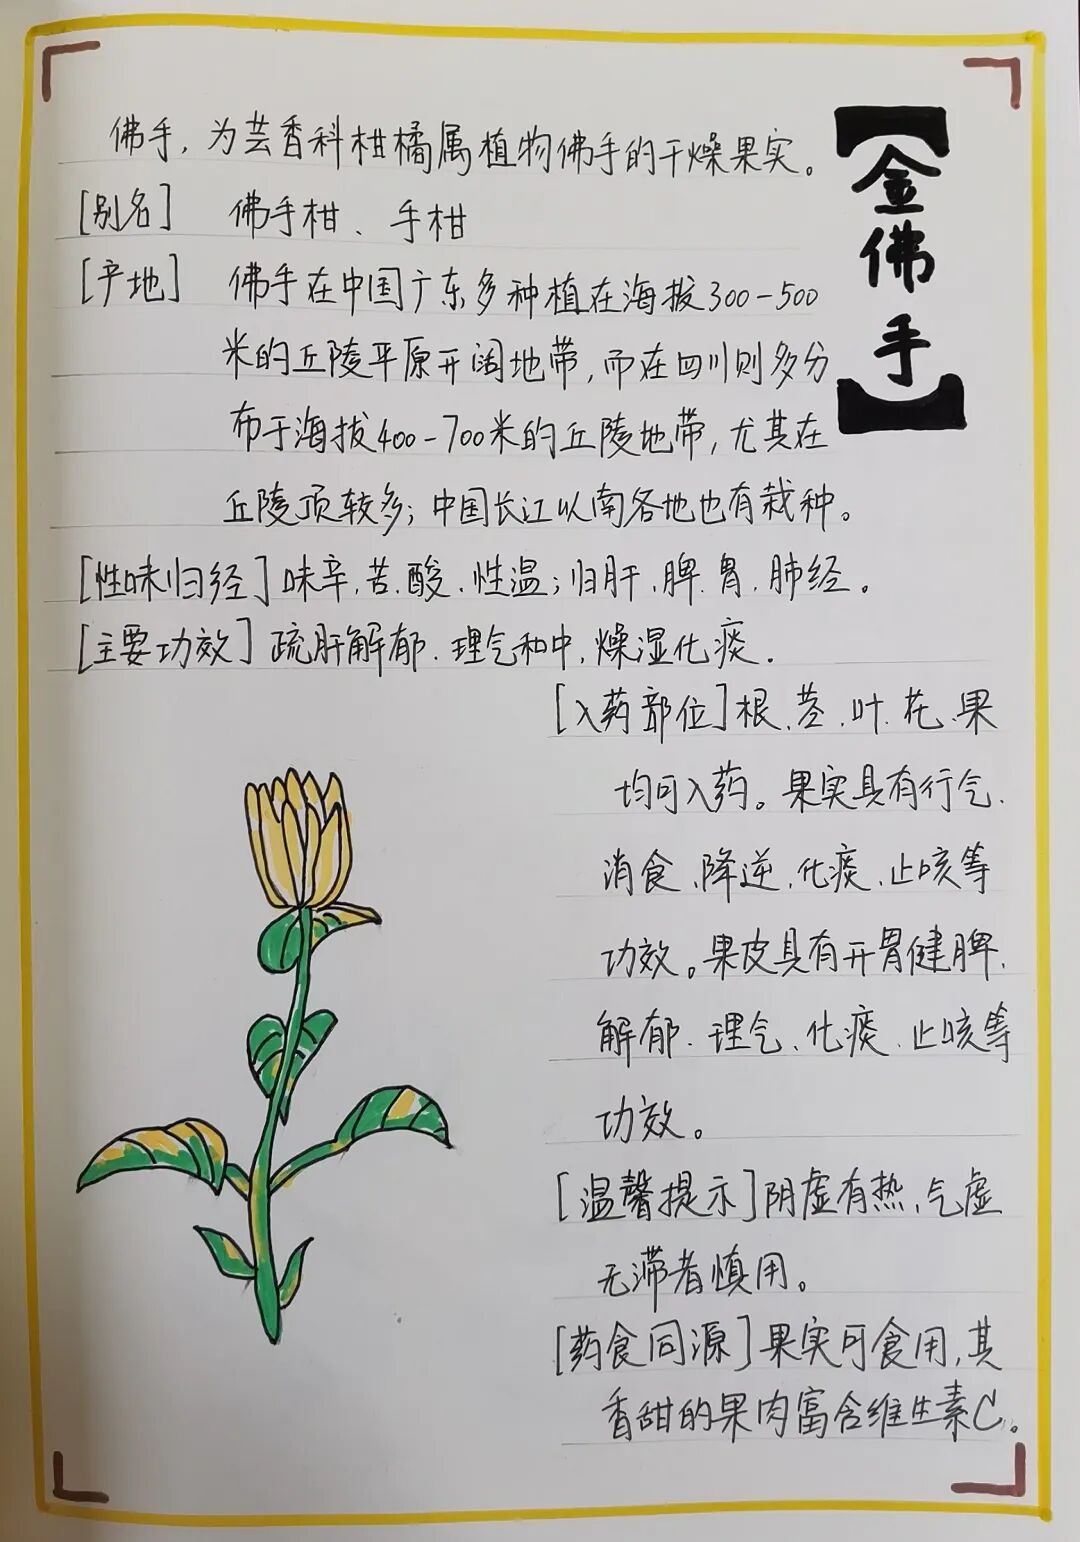 【金佛手】
佛手，为芸香科柑橘属植物佛手的干燥果实。
[别名] 佛手柑、手柑
[产地] 佛手在中国广东多种植在海拔300-500
米的丘陵平原开阔地带，而在四川则多分
布于海拔400-700米的丘陵地带，尤其在
丘陵顶较多；中国长江以南各地也有栽种。
[性味归经] 味辛、苦、酸、性温；归肝、脾、胃、肺经。
[主要功效] 疏肝解郁、理气和中，燥湿化痰.
[入药部位] 根、茎、叶、花、果
均可入药。果实具有行气、
消食、降逆、化痰、止咳等
功效。果皮具有开胃健脾、
解郁、理气、化痰、止咳等
功效。
[温馨提示] 阴虚有热，气虚
无滞者慎用。
[药食同源] 果实可食用，其
香甜的果肉富含维生素C。